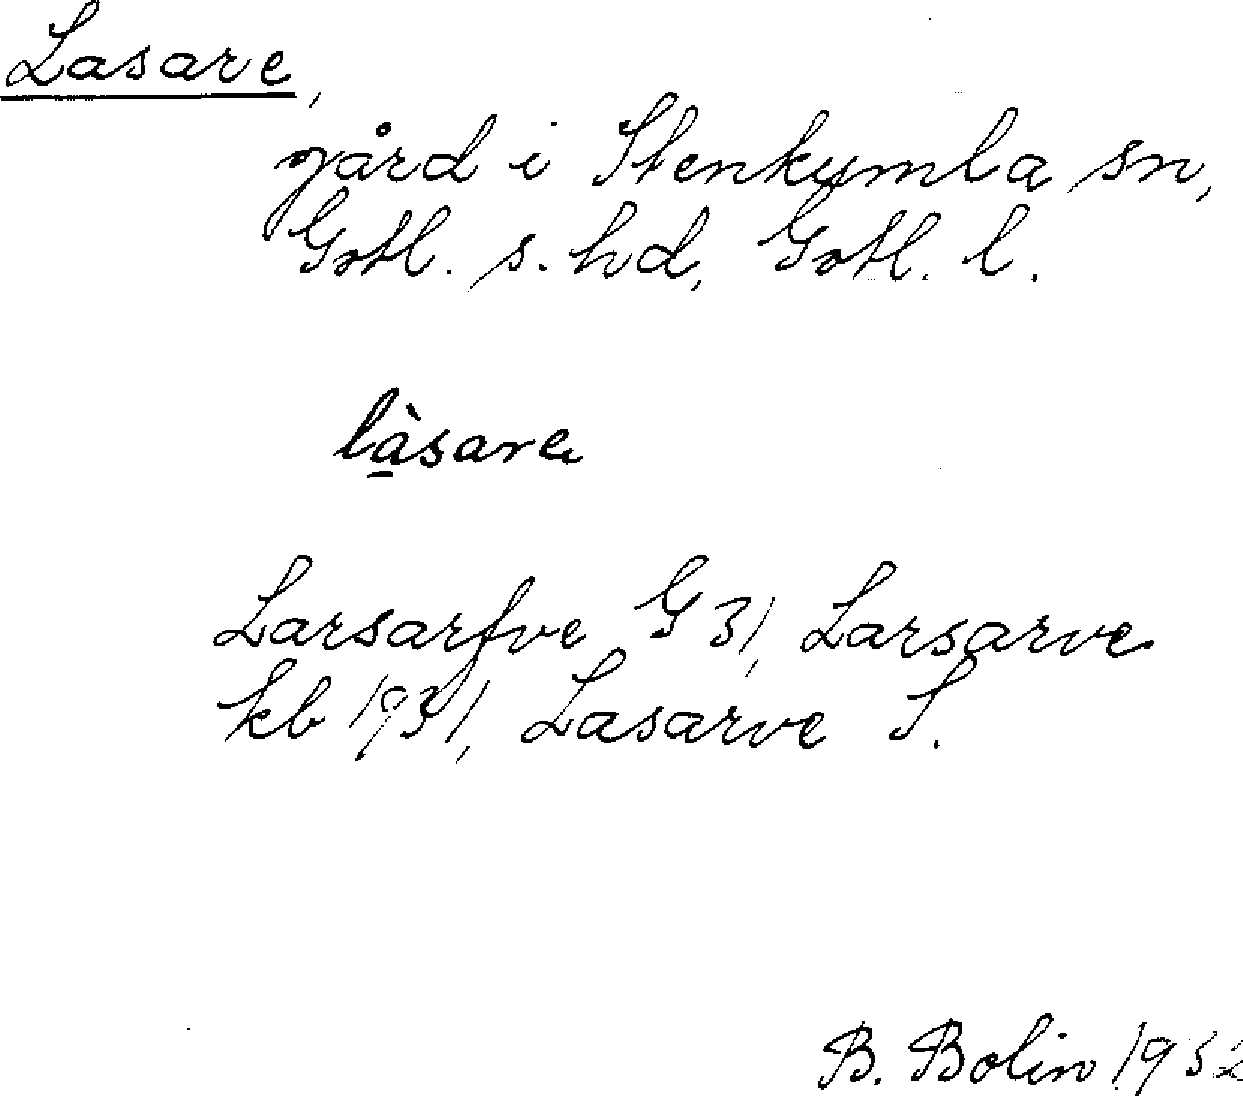 Lasare,
gård i Stenkumla sn,
Gotl. s. hd, Gotl. l.
là̱sare
Larsarfve G 31, Larsarve
kb 1931, Lasarve S.
B. Bolin 1932